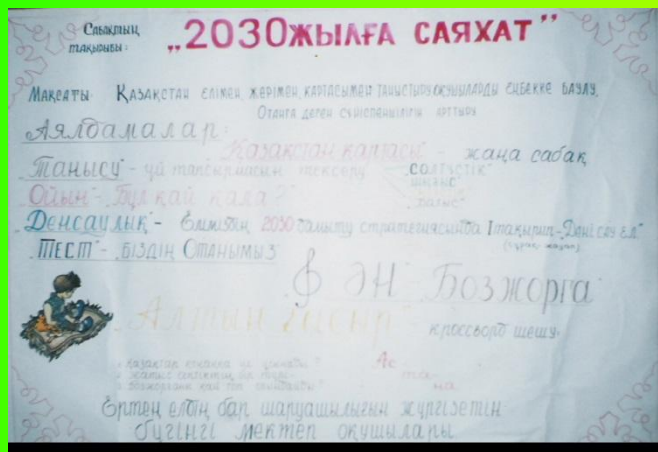 Сабақтың тақырыбы: „2030 ЖЫЛҒА САЯХАТ”
Мақсаты: Қазақстан елімен, жерімен, картасымен таныстыру, оқушыларды еңбекке баулу,
Отанға деген сүйіспеншілігін арттыру
Аялдамалар:
„Қазақстан картасы” - жаңа сабақ
„Танысу” - үй тапсырмасын тексеру „солтүстік”
„шығыс”
Ойын - „Бұл қай қала?” „батыс”
„Денсаулық” - Еліміздің 2030 дамыту стратегиясында I тақырып - „Дені сау ел”
(сұрақ-жауап)
„ТЕСТ” - „БІЗДІҢ ОТАНЫМЫЗ”
ӘН „Бозжорға”
„Алтын ғасыр” - кроссворд шешу.
Ас
та
на
Ертең елдің бар шаруашылығын жүргізетін
бүгінгі мектеп оқушылары